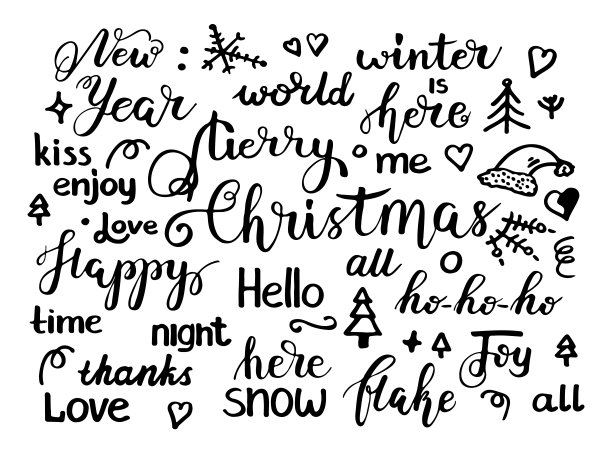 New
winter
Year
world
is
here
kiss
Merry
me
enjoy
Love
Christmas
Happy
all
Hello
ho-ho-ho
time
night
here
Joy
thanks
flake
Love
snow
all